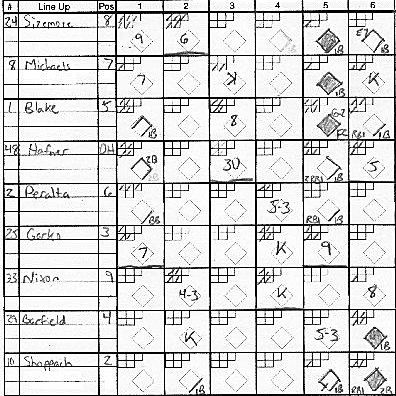 # Line Up Pos 1 2 3 4 5 6
24 Sizemore 8 9 6 1B 1B
8 Michaels 7 7 K 1B K
1 Blake 5 1B 8 6-2 FC RBI 1B
48 Hafner DH 2B 3U 2RBI 1B 5
2 Peralta 6 BB 5-3 RBI 1B
25 Garko 3 7 K 9
33 Nixon 9 4-3 K 8
29 Barfield 4 K 5-3 1B
10 Shoppach 2 1B 1B RBI 2B